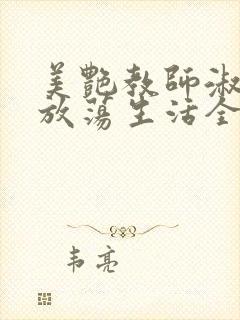 美艷教師淑
放蕩生活全
韦亮